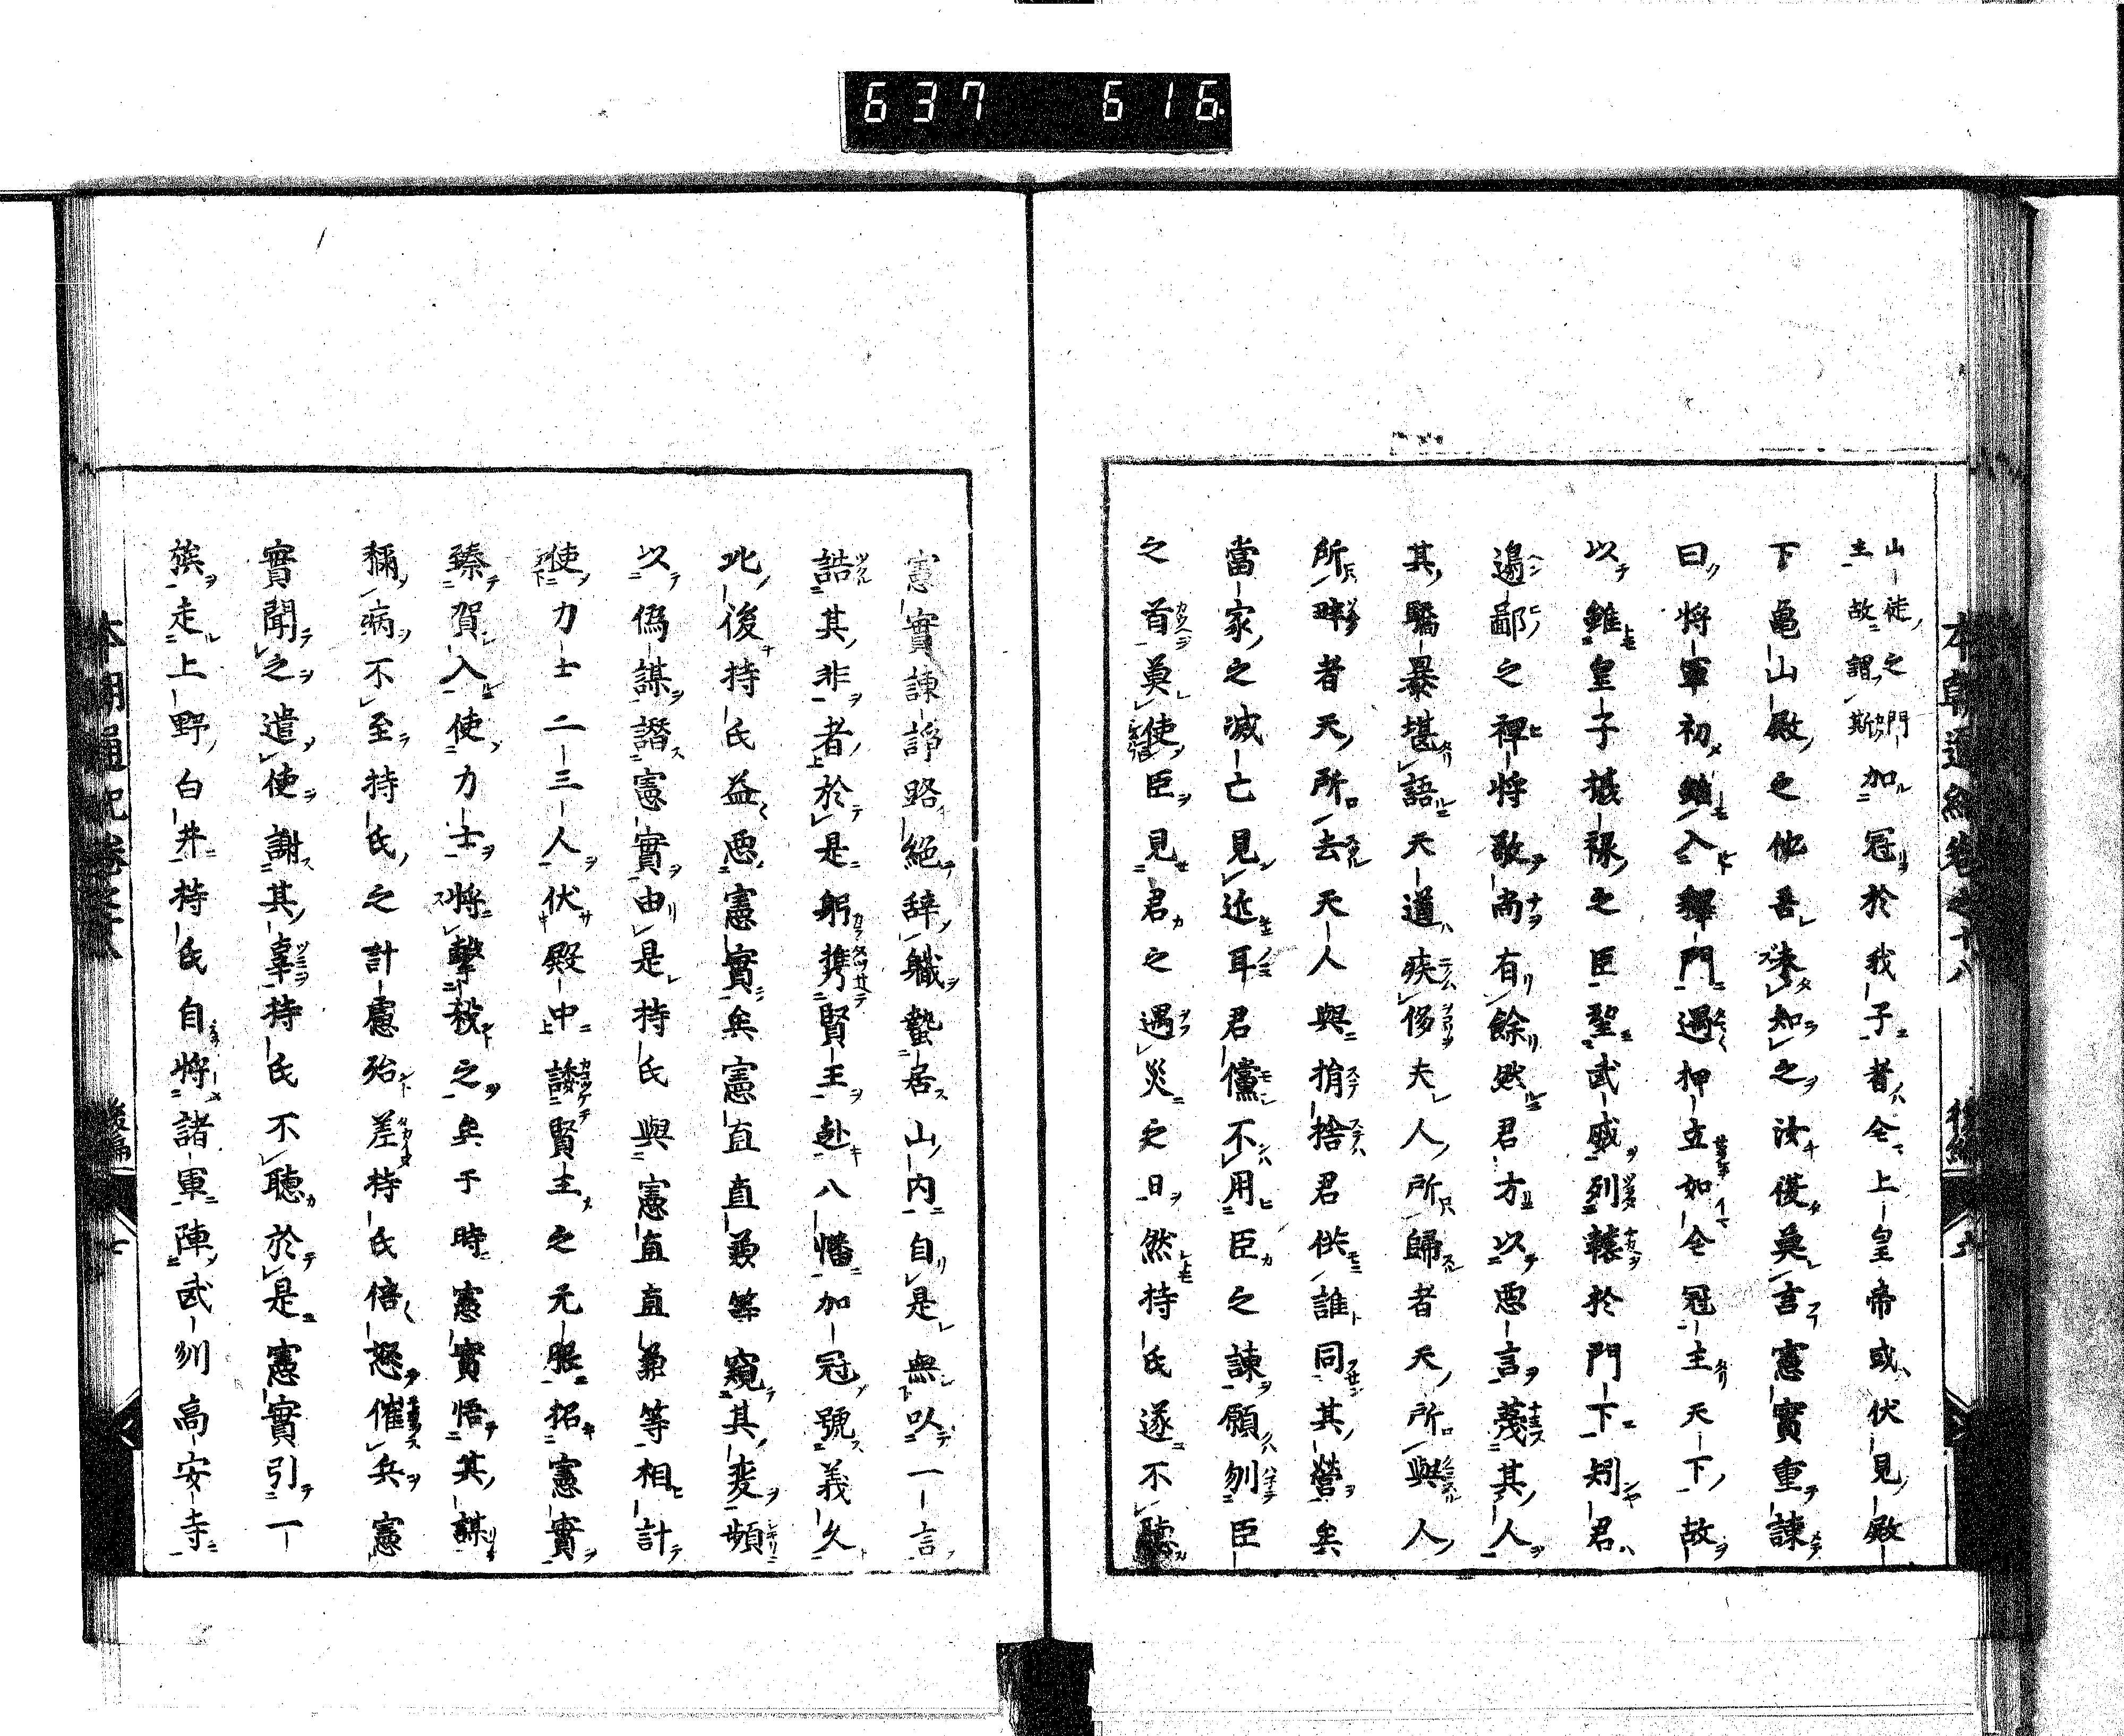 637 616.
本朝通紀卷之十八 後編 六
山徒之門
主故謂斯加冠於我子者今上皇帝或伏見殿
下亀山殿之他吾未知之汝僕莫言憲實重諫
曰將軍初雖入釋門過押立如今冠主天下故
以雖皇子摂禄之臣聖武威列轅於門下矧君
邊鄙之裨將敬尚有餘然君方以悪言蔑其人
其驕暴堪語天道疾侈夫人所歸者天所與人
所畔者天所去天人與捐捨君供誰同其營矣
當家之滅亡見近耳君儻不用臣之諫願刎臣
之首莫使臣見君之遇災之日然持氏遂不聽
憲實諫諍路絶辞職蟄居山内自是無以一言
誥其非者於是躬携賢王赴八幡加冠號義久
此後持氏益悪憲實矣憲直直兼等窺其変頻
以偽謀譖憲實由是持氏與憲直直兼等相計
使力士二三人伏殿中諉賢王之元服招憲實
臻賀入使力士將撃殺之矣于時憲實悟其謀
稱病不至持氏之計慮殆差持氏倍怒催兵憲
實聞之遣使謝其辜持氏不聽於是憲實引一
族走上野白井持氏自將諸軍陣武州高安寺
本朝通紀卷之十八 後編 七